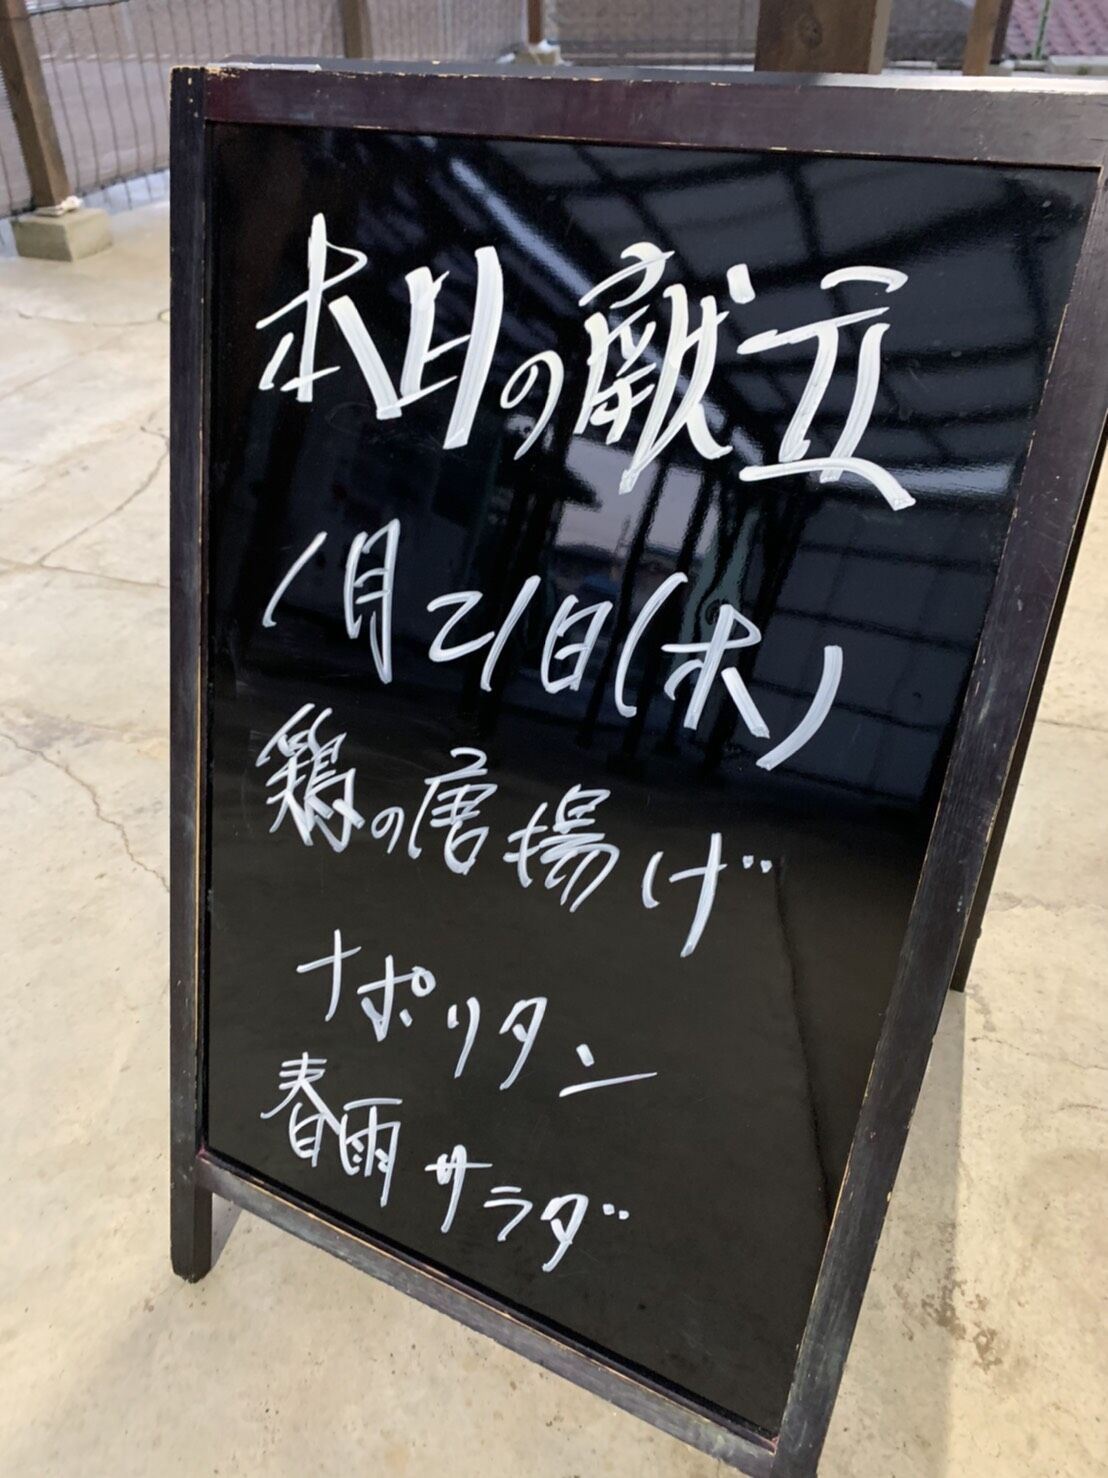 本日の献立
1月21日(木)
鶏の唐揚げ
ナポリタン
春雨サラダ